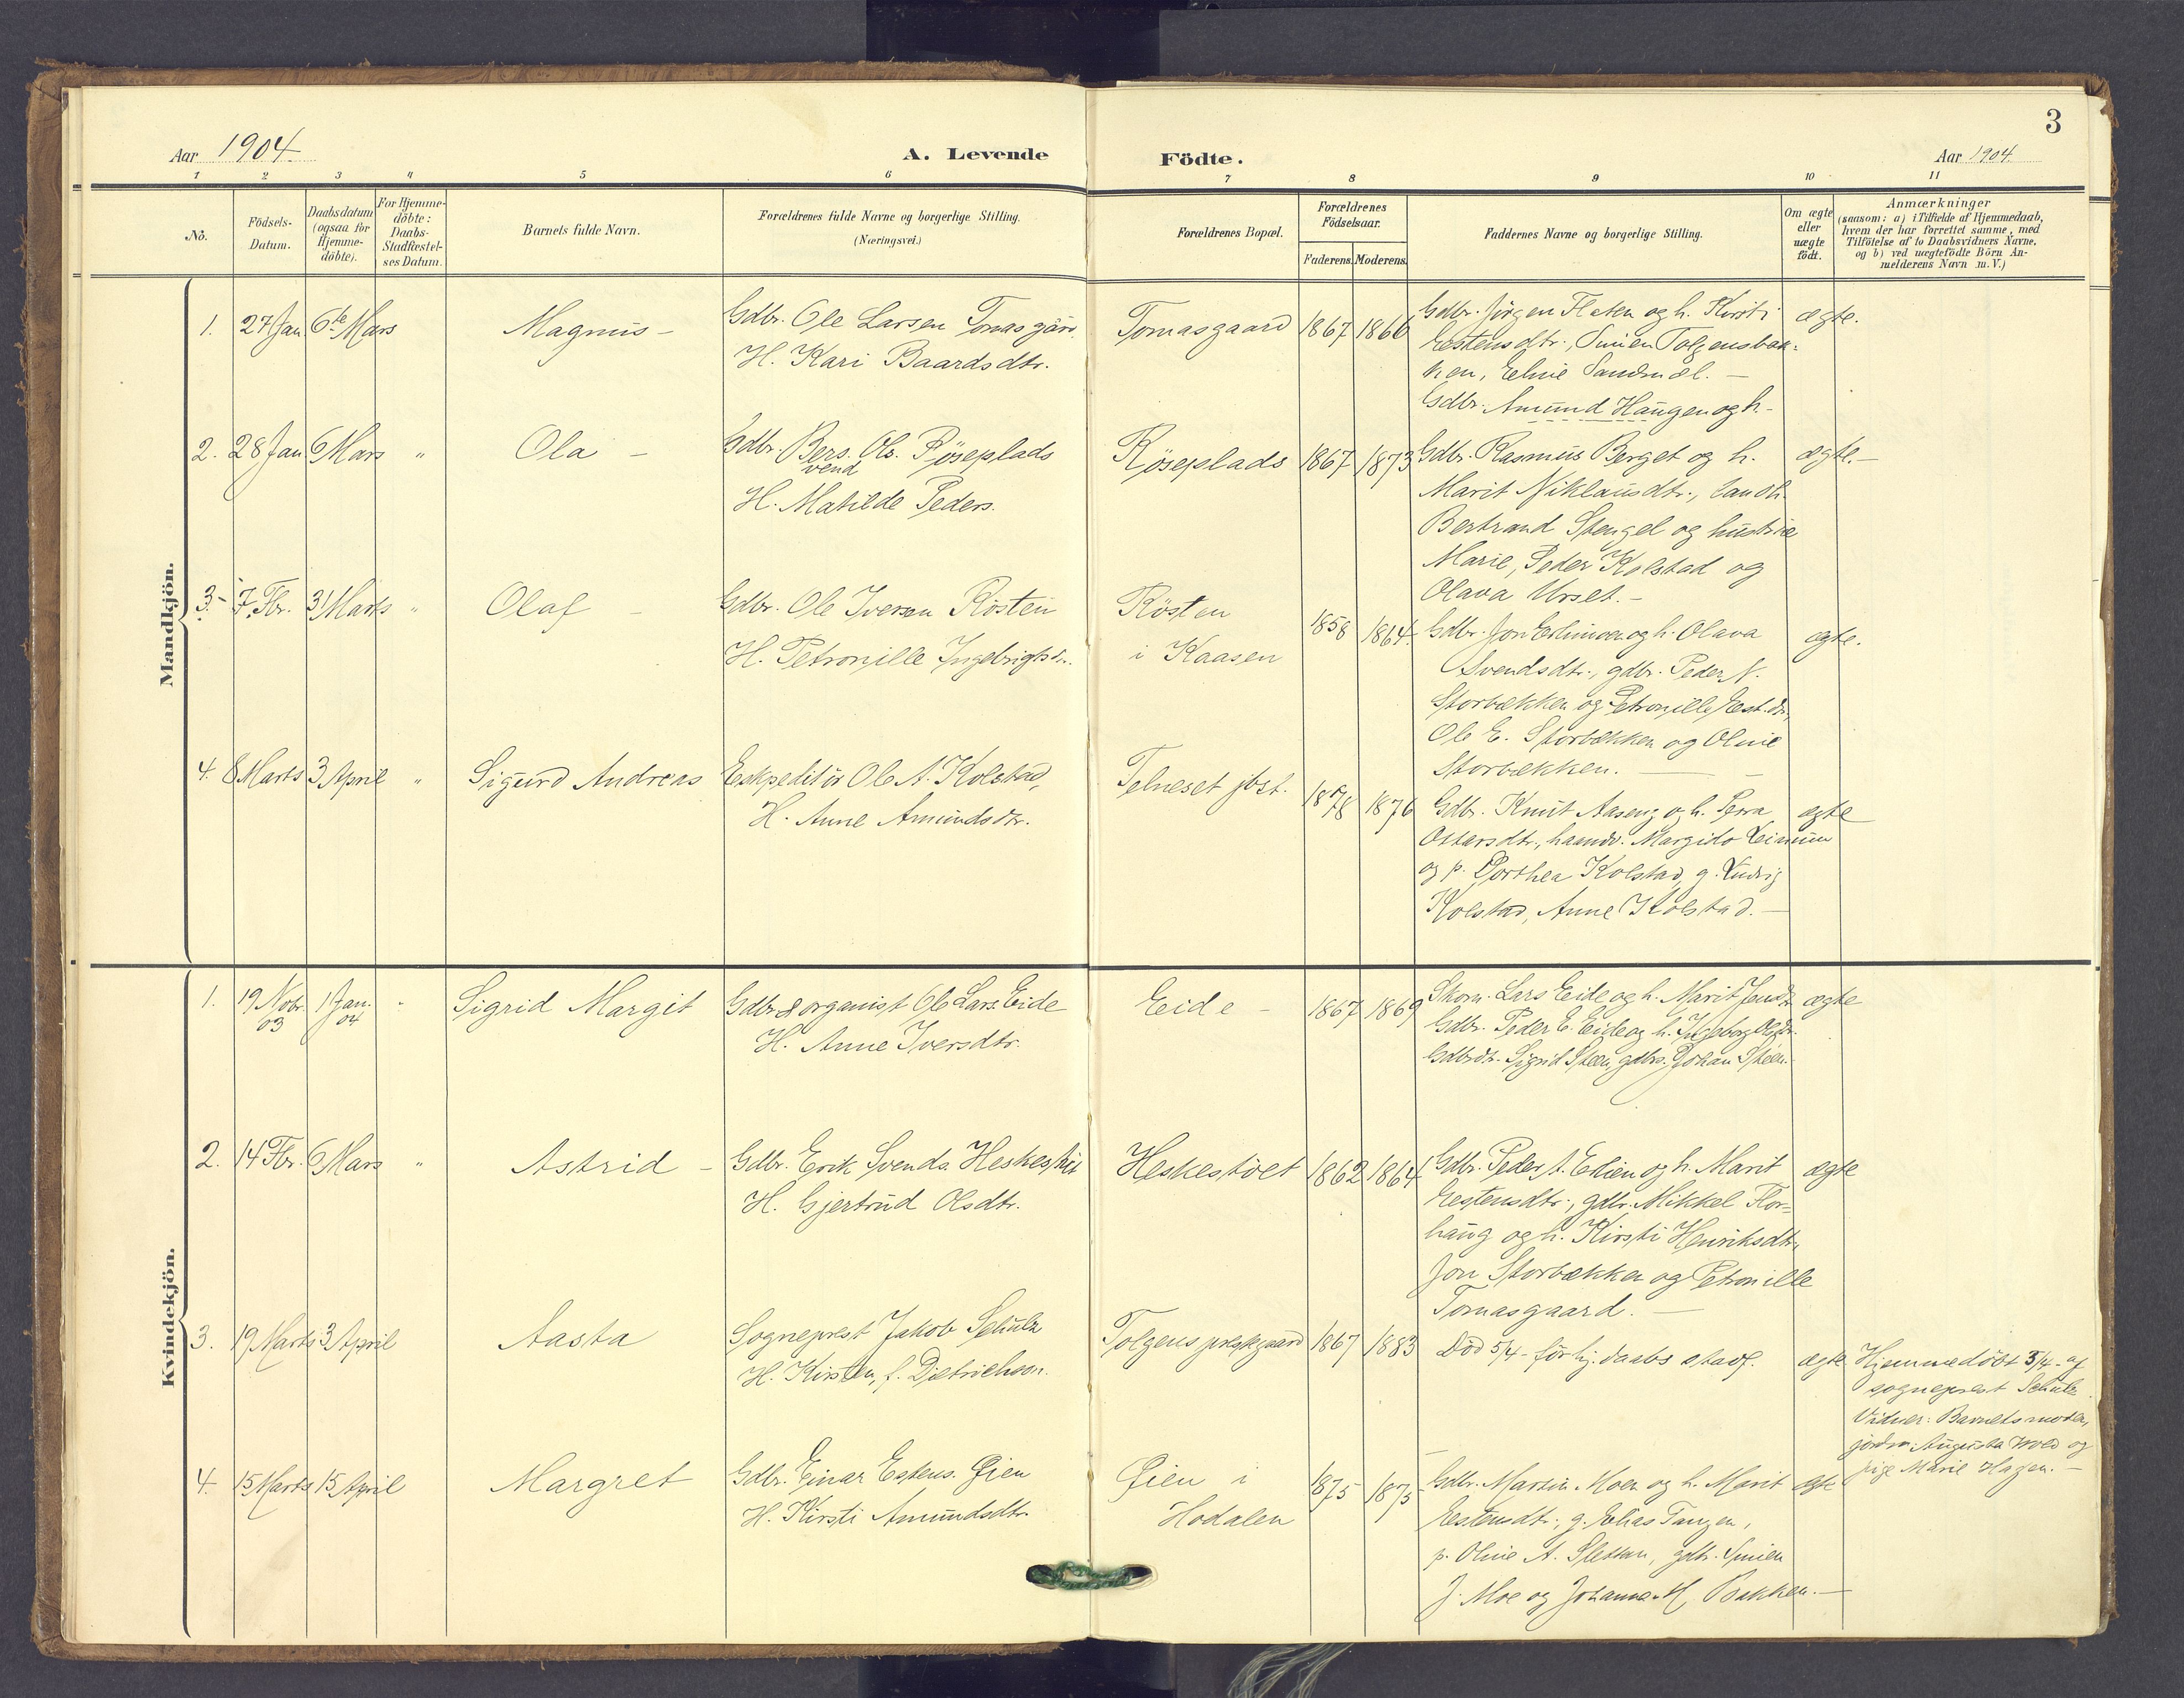 3
Aar 1904.
A. Levende Födte.
Aar 1904.
1 2 3 4 5 6 7 8 9 10 11
No.
Födsels-Datum.
Daabsdatum (ogsaa for Hjemme-döbte).
For Hjemme-döbte: Daabs-Stadfæstel-ses Datum.
Barnets fulde Navn.
Forældrenes fulde Navne og borgerlige Stilling. (Næringsvei.)
Forældrenes Bopæl.
Forældrenes Födselsaar.
Faderens. Moderens.
Faddernes Navne og borgerlige Stilling.
Om ægte eller uægte födt.
Anmærkninger
(saasom: a) i Tilfælde af Hjemmedaab,
hvem der har forrettet samme, med
Tilföielse af to Daabsvidners Navne,
og b) ved uægtefödte Börn An-
melderens Navn m. V.)
Mandkjön.
1. 27 Jan. 6te Mars Magnus - Gdbr. Ole Larsen Tomasgård.
H. Kari Baardsdtr.
Tomasgaard 1867 1866
Gdbr. Jörgen Flaten og h. Kirsti
Estensdtr., Simen Tolgensbak-
ken, Eline Sandmæl. -
Gdbr. Amund Haugen og h. -
ægte.
2. 28 Jan. 6 Mars " Ola - Gdbr. Bers. Ols. Röseplads
vend
H. Matilde Peders.
Röseplads 1867 1873
Gdbr. Rasmus Berget og h.
Marit Niklausdtr., landh.
Bertrand Stengel og hustrue
Marie, Peder Kolstad og
Olava Urset. -
ægte. -
3. - 7. Fbr. 31 Marts " Olaf - Gdbr. Ole Iversen Rösten
H. Petronille Ingebrigtsdtr.
Rösten
i Kaasen
1858 1864.
Gdbr. Jon Erlimoen og h. Olava
Svendsdtr., gdbr. Peder N.
Storbækken og Petronille Est.dtr,
Ole E. Storbækken og Oline
Storbækken. -
ægte.
4. 8 Marts 3 April " Sigurd Andreas Expeditör Ole A. Kolstad,
H. Anne Amundsdtr.
Telneset jbst. 1878 1876
Gdbr. Knut Aaseng og h. Pera
Ostarsdtr., haandv. Margido Leirmum
og p. Dorthea Kolstad, g. Ludvig
Kolstad, Anne Kolstad. -
ægte
Kvindekjön.
1. 19 Novbr. 03 1 Jan. 04 " Sigrid Margit Gdbr & organist Ole Lars. Eide
H. Anne Iversdtr.
Eide - 1867 1869
Skom. Lars Eide og h. Marit Jensdtr.
Gdbr. Peder E. Eide og h. Ingeborg Olsdtr.
Gdbrdtr. Sigrid Steen, gdbrs. Johan Steen.
ægte
2. 14 Fbr. 6 Mars " Astrid - Gdbr. Erik Svends. Heskestöet
H. Gjertrud Olsdtr.
Heskestöet 1862 1864
Gdbr. Peder A. Erlien og h. Marit
Estensdtr., gdbr. Mikkel Flor-
haug og h. Kirsti Henriksdtr.,
Jon Storbækken og Petronille
Tomasgaard. -
ægte
3. 19 Marts 3 April Aasta Sogneprest Jakob Schulz
H. Kirsten, f. Dietrichson.
Tolgens prestegaard 1867 1883
Död 5/4 - för hj. daabs stadf.
ægte
Hjemmedöbt 3/4 - af
sogneprest Schulz.
Vidner: Barnets moder,
jordm. Augusta Wold og
pige Marie Hagen. -
4. 15 Marts 15 April Margret Gdbr. Einar Estens. Øien
H. Kirsti Amundsdtr.
Øien i
Hodalen
1875 1875
Gdbr. Martin Moen og h. Marit
Estensdtr., g. Elias Tangen,
p. Oline A. Sletten, gdbr. Simen
J. Moe og Johanne M. Bakken. -
ægte